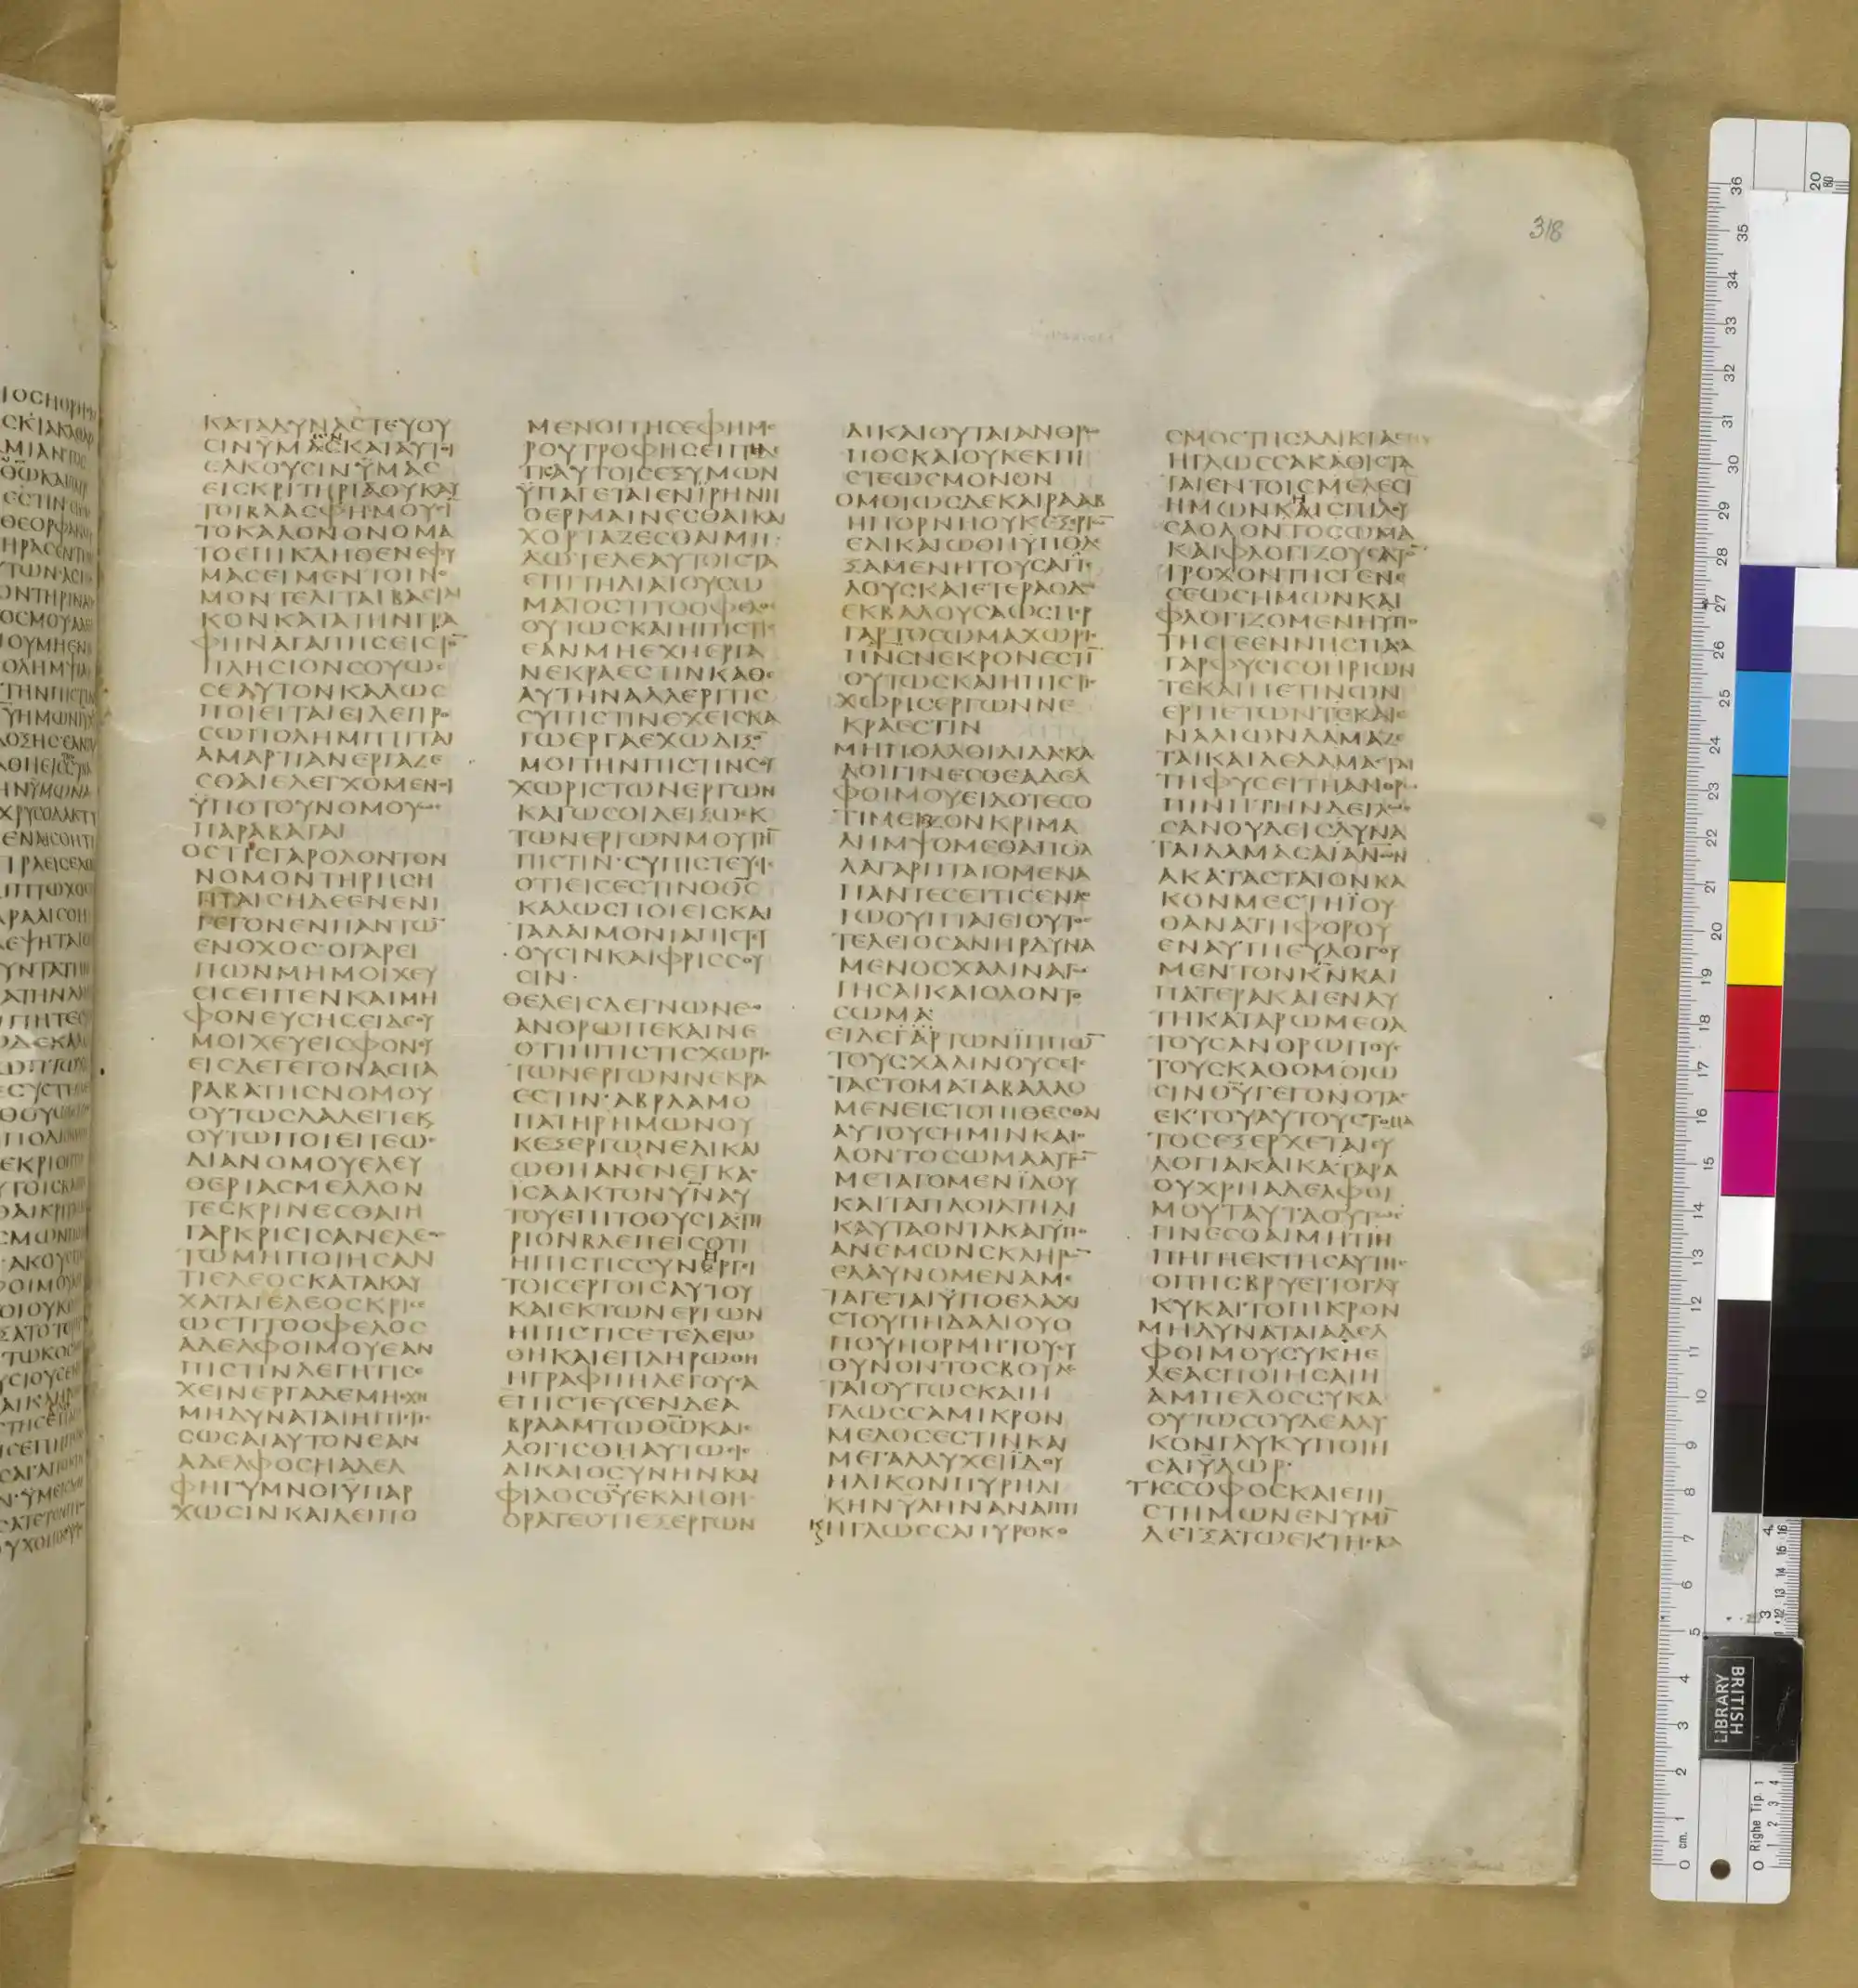 318
ΚΑΤΑΔΥΝΑϹΤΕΥΟΥ
ϹΙΝΫΜΑϹΚΑΙΑΥΤΟΙ
ΕΛΚΟΥϹΙΝΫΜΑϹ
ΕΙϹΚΡΙΤΗΡΙΑΟΥΚΑΥ
ΤΟΙΒΛΑϹΦΗΜΟΥϹΙ
ΤΟΚΑΛΟΝΟΝΟΜΑ
ΤΟΕΠΙΚΛΗΘΕΝΕΦΥ
ΜΑϹΕΙΜΕΝΤΟΙΝΟ
ΜΟΝΤΕΛΙΤΑΙΒΑϹΙΛΙ
ΚΟΝΚΑΤΑΤΗΝΓΡΑ
ΦΗΝΑΓΑΠΗϹΕΙϹΤΟ̅
ΠΛΗϹΙΟΝϹΟΥΩϹ
ϹΕΑΥΤΟΝΚΑΛΩϹ
ΠΟΙΕΙΤΑΙΕΙΔΕΠΡΟ
ϹΩΠΟΛΗΜΠΤΙΤΑΙ
ΑΜΑΡΤΙΑΝΕΡΓΑΖΕ
ϹΘΑΙΕΛΕΓΧΟΜΕΝΟΙ
ΫΠΟΤΟΥΝΟΜΟΥΩϹ
ΠΑΡΑΒΑΤΑΙ
ΟϹΤΙϹΓΑΡΟΛΟΝΤΟΝ
ΝΟΜΟΝΤΗΡΗϹΗ
ΠΤΑΙϹΗΔΕΕΝΕΝΙ
ΓΕΓΟΝΕΝΠΑΝΤΩ̅
ΕΝΟΧΟϹ·ΟΓΑΡΕΙ
ΠΩΝΜΗΜΟΙΧΕΥ
ϹΙϹΕΙΠΕΝΚΑΙΜΗ
ΦΟΝΕΥϹΗϹΕΙΔΕΟΥ
ΜΟΙΧΕΥΕΙϹΦΟΝΕΥ
ΕΙϹΔΕΓΕΓΟΝΑϹΠΑ
ΡΑΒΑΤΗϹΝΟΜΟΥ
ΟΥΤΩϹΛΑΛΕΙΤΕΚΑΙ
ΟΥΤΩΠΟΙΕΙΤΕΩϹ
ΔΙΑΝΟΜΟΥΕΛΕΥ
ΘΕΡΙΑϹΜΕΛΛΟΝ
ΤΕϹΚΡΙΝΕϹΘΑΙΗ
ΓΑΡΚΡΙϹΙϹΑΝΕΛΕΟϹ
ΤΩΜΗΠΟΙΗϹΑΝ
ΤΙΕΛΕΟϹΚΑΤΑΚΑΥ
ΧΑΤΑΙΕΛΕΟϹΚΡΙϹΕ
ΩϹΤΙΤΟΟΦΕΛΟϹ
ΑΔΕΛΦΟΙΜΟΥΕΑΝ
ΠΙϹΤΙΝΛΕΓΗΤΙϹΕ
ΧΕΙΝΕΡΓΑΔΕΜΗΕΧΗ
ΜΗΔΥΝΑΤΑΙΗΠΙϹΤΙϹ
ϹΩϹΑΙΑΥΤΟΝΕΑΝ
ΑΔΕΛΦΟϹΗΑΔΕΛ
ΦΗΓΥΜΝΟΙΫΠΑΡ
ΧΩϹΙΝΚΑΙΛΕΙΠΟ
ΜΕΝΟΙΤΗϹΕΦΗΜΕ
ΡΟΥΤΡΟΦΗϹΕΙΠΗ
ΤΙϹΑΥΤΟΙϹΕΞΥΜΩΝ
ΫΠΑΓΕΤΑΙΕΝΙΡΗΝΗ
ΘΕΡΜΑΙΝΕϹΘΑΙΚΑΙ
ΧΟΡΤΑΖΕϹΘΑΙΜΗ
ΔΩΤΕΔΕΑΥΤΟΙϹΤΑ
ΕΠΙΤΗΔΙΑΤΟΥϹΩ
ΜΑΤΟϹΤΙΤΟΟΦΕΛΟϹ
ΟΥΤΩϹΚΑΙΗΠΙϹΤΙϹ
ΕΑΝΜΗΕΧΗΕΡΓΑ
ΝΕΚΡΑΕϹΤΙΝΚΑΘΕ
ΑΥΤΗΝΑΛΛΕΡΙΤΙϹ
ϹΥΠΙϹΤΙΝΕΧΕΙϹΚΑ
ΓΩΕΡΓΑΕΧΩΔΙΞΟ̅
ΜΟΙΤΗΝΠΙϹΤΙΝϹΟΥ
ΧΩΡΙϹΤΩΝΕΡΓΩΝ
ΚΑΓΩϹΟΙΔΕΙΞΩΕΚ
ΤΩΝΕΡΓΩΝΜΟΥΤΗ̅
ΠΙϹΤΙΝ·ϹΥΠΙϹΤΕΥΕΙϹ
ΟΤΙΕΙϹΕϹΤΙΝΟΘ̅Ϲ̅
ΚΑΛΩϹΠΟΙΕΙϹΚΑΙ
ΤΑΔΑΙΜΟΝΙΑΠΙϹΤΕΥ
ΟΥϹΙΝΚΑΙΦΡΙϹϹΟΥ
ϹΙΝ·
ΘΕΛΕΙϹΔΕΓΝΩΝΕΩ
ΑΝΘΡΩΠΕΚΑΙΝΕ
ΟΤΙΗΠΙϹΤΙϹΧΩΡΙϹ
ΤΩΝΕΡΓΩΝΝΕΚΡΑ
ΕϹΤΙΝ·ΑΒΡΑΑΜΟ
ΠΑΤΗΡΗΜΩΝΟΥ
ΚΕΞΕΡΓΩΝΕΔΙΚΑΙ
ΩΘΗΑΝΕΝΕΓΚΑϹ
ΪϹΑΑΚΤΟΝΥ̅Ν̅ΑΥ
ΤΟΥΕΠΙΤΟΘΥϹΙΑϹΤΗ
ΡΙΟΝΒΛΕΠΕΙϹΟΤΙ
ΗΠΙϹΤΙϹϹΥΝΕΡΓΙ
ΤΟΙϹΕΡΓΟΙϹΑΥΤΟΥ
ΚΑΙΕΚΤΩΝΕΡΓΩΝ
ΗΠΙϹΤΙϹΕΤΕΛΕΙΩ
ΘΗΚΑΙΕΠΛΗΡΩΘΗ
ΗΓΡΑΦΗΗΛΕΓΟΥϹΑ
ΕΠΙϹΤΕΥϹΕΝΔΕΑ
ΒΡΑΑΜΤΩΘ̅Ω̅ΚΑΙΕ
ΛΟΓΙϹΘΗΑΥΤΩΕΙϹ
ΔΙΚΑΙΟϹΥΝΗΝΚΑΙ
ΦΙΛΟϹΘ̅Υ̅ΕΚΛΗΘΗ
ΟΡΑΤΕΟΤΙΕΞΕΡΓΩΝ
ΔΙΚΑΙΟΥΤΑΙΑΝΘΡΩ
ΠΟϹΚΑΙΟΥΚΕΚΠΙ
ϹΤΕΩϹΜΟΝΟΝ
ΟΜΟΙΩϹΔΕΚΑΙΡΑΑΒ
ΗΠΟΡΝΗΟΥΚΕΞΕΡΓΩ̅
ΕΔΙΚΑΙΩΘΗΫΠΟΔΕ
ΞΑΜΕΝΗΤΟΥϹΑΓΓΕ
ΛΟΥϹΚΑΙΕΤΕΡΑΟΔΩ
ΕΚΒΑΛΟΥϹΑΩϹΠΕΡ
ΓΑΡΤΟϹΩΜΑΧΩΡΙϹ
Π̅Ν̅Ϲ̅ΝΕΚΡΟΝΕϹΤΙ̅
ΟΥΤΩϹΚΑΙΗΠΙϹΤΙϹ
ΧΩΡΙϹΕΡΓΩΝΝΕ
ΚΡΑΕϹΤΙΝ
ΜΗΠΟΛΛΟΙΔΙΔΑϹΚΑ
ΛΟΙΓΙΝΕϹΘΕΑΔΕΛ
ΦΟΙΜΟΥΕΙΔΟΤΕϹΟ
ΤΙΜΕΙΖΟΝΚΡΙΜΑ
ΛΗΜΨΟΜΕΘΑΠΟΛ
ΛΑΓΑΡΠΤΑΙΟΜΕΝΑ
ΠΑΝΤΕϹΕΙΤΙϹΕΝΛΟ
ΓΩΟΥΠΤΑΙΕΙΟΥΤΟϹ
ΤΕΛΕΙΟϹΑΝΗΡΔΥΝΑ
ΜΕΝΟϹΧΑΛΙΝΑΓΩ
ΓΗϹΑΙΚΑΙΟΛΟΝΤΟ
ϹΩΜΑ
ΕΙΔΕΓΑΡΤΩΝΪΠΠΩ̅
ΤΟΥϹΧΑΛΙΝΟΥϹΕΙϹ
ΤΑϹΤΟΜΑΤΑΒΑΛΛΟ
ΜΕΝΕΙϹΤΟΠΙΘΕϹΘΑΙ
ΑΥΤΟΥϹΗΜΙΝΚΑΙΟ
ΛΟΝΤΟϹΩΜΑΑΥΤΩ̅
ΜΕΤΑΓΟΜΕΝΪΔΟΥ
ΚΑΙΤΑΠΛΟΙΑΤΗΛΙ
ΚΑΥΤΑΟΝΤΑΚΑΙΫΠΟ
ΑΝΕΜΩΝϹΚΛΗΡΩ̅
ΕΛΑΥΝΟΜΕΝΑΜΕ
ΤΑΓΕΤΑΙΫΠΟΕΛΑΧΙ
ϹΤΟΥΠΗΔΑΛΙΟΥΟ
ΠΟΥΗΟΡΜΗΤΟΥΕΥ
ΘΥΝΟΝΤΟϹΒΟΥΛΕ
ΤΑΙΟΥΤΩϹΚΑΙΗ
ΓΛΩϹϹΑΜΙΚΡΟΝ
ΜΕΛΟϹΕϹΤΙΝΚΑΙ
ΜΕΓΑΛΑΥΧΕΙΪΔΟΥ
ΗΛΙΚΟΝΠΥΡΗΛΙ
ΚΗΝΫΛΗΝΑΝΑΠΤΙ
ΚΑΙΗΓΛΩϹϹΑΠΥΡΟΚΟ
ϹΜΟϹΤΗϹΑΔΙΚΙΑϹ
ΗΓΛΩϹϹΑΚΑΘΙϹΤΑ
ΤΑΙΕΝΤΟΙϹΜΕΛΕϹΙ̅
ΗΜΩΝΚΑΙϹΠΙΛΟΥ
ϹΑΟΛΟΝΤΟϹΩΜΑ
ΚΑΙΦΛΟΓΙΖΟΥϹΑΤΟ̅
ΤΡΟΧΟΝΤΗϹΓΕΝΕ
ϹΕΩϹΗΜΩΝΚΑΙ
ΦΛΟΓΙΖΟΜΕΝΗΥΠΟ
ΤΗϹΓΕΕΝΝΗϹΠΑϹΑ
ΓΑΡΦΥϹΙϹΘΗΡΙΩΝ
ΤΕΚΑΙΠΕΤΙΝΩΝ
ΕΡΠΕΤΩΝΤΕΚΑΙΕ
ΝΑΛΙΩΝΔΑΜΑΖΕ
ΤΑΙΚΑΙΔΕΔΑΜΑϹΤΑΙ
ΤΗΦΥϹΕΙΤΗΑΝΘΡΩ
ΠΙΝΗΤΗΝΔΕΓΛΩϹ
ϹΑΝΟΥΔΕΙϹΔΥΝΑ
ΤΑΙΔΑΜΑϹΑΙΑΝΘΡΩΠΩΝ
ΑΚΑΤΑϹΤΑΤΟΝΚΑ
ΚΟΝΜΕϹΤΗΪΟΥ
ΘΑΝΑΤΗΦΟΡΟΥ
ΕΝΑΥΤΗΕΥΛΟΓΟΥ
ΜΕΝΤΟΝΚ̅Ν̅ΚΑΙ
ΠΑΤΕΡΑΚΑΙΕΝΑΥ
ΤΗΚΑΤΑΡΩΜΕΘΑ
ΤΟΥϹΑΝΘΡΩΠΟΥϹ
ΤΟΥϹΚΑΘΟΜΟΙΩ
ϹΙΝΘ̅Υ̅ΓΕΓΟΝΟΤΑϹ
ΕΚΤΟΥΑΥΤΟΥϹΤΟΜΑ
ΤΟϹΕΞΕΡΧΕΤΑΙΕΥ
ΛΟΓΙΑΚΑΙΚΑΤΑΡΑ
ΟΥΧΡΗΑΔΕΛΦΟΙ
ΜΟΥΤΑΥΤΑΟΥΤΩϹ
ΓΙΝΕϹΘΑΙΜΗΤΙΗ
ΠΗΓΗΕΚΤΗϹΑΥΤΗϹ
ΟΠΗϹΒΡΥΕΙΤΟΓΛΥ
ΚΥΚΑΙΤΟΠΙΚΡΟΝ
ΜΗΔΥΝΑΤΑΙΑΔΕΛ
ΦΟΙΜΟΥϹΥΚΗΕ
ΛΕΑϹΠΟΙΗϹΑΙΗ
ΑΜΠΕΛΟϹϹΥΚΑ
ΟΥΤΩϹΟΥΔΕΑΛΥ
ΚΟΝΓΛΥΚΥΠΟΙΗ
ϹΑΙΫΔΩΡ·
ΤΙϹϹΟΦΟϹΚΑΙΕΠΙ
ϹΤΗΜΩΝΕΝΥΜΙ̅
ΔΕΙΞΑΤΩΕΚΤΗϹΚΑ
BRITISH
LIBRARY